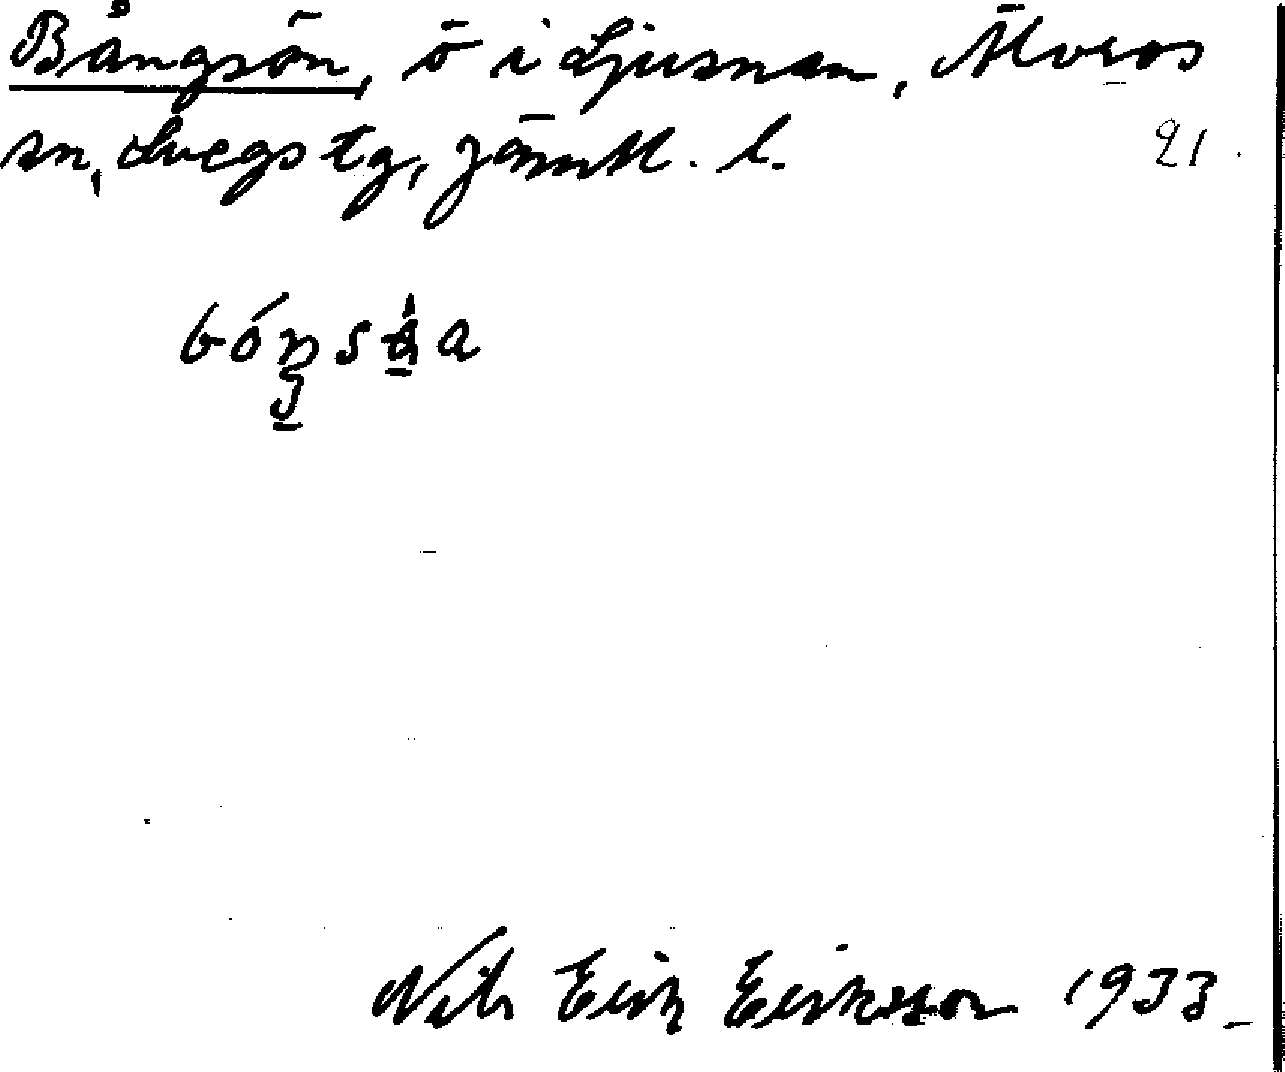 Bångsön, ö i Ljusnan, Älvros
sn, Svegs tg, Jämtl. l. 21.
Nils Erik Eriksson 1933